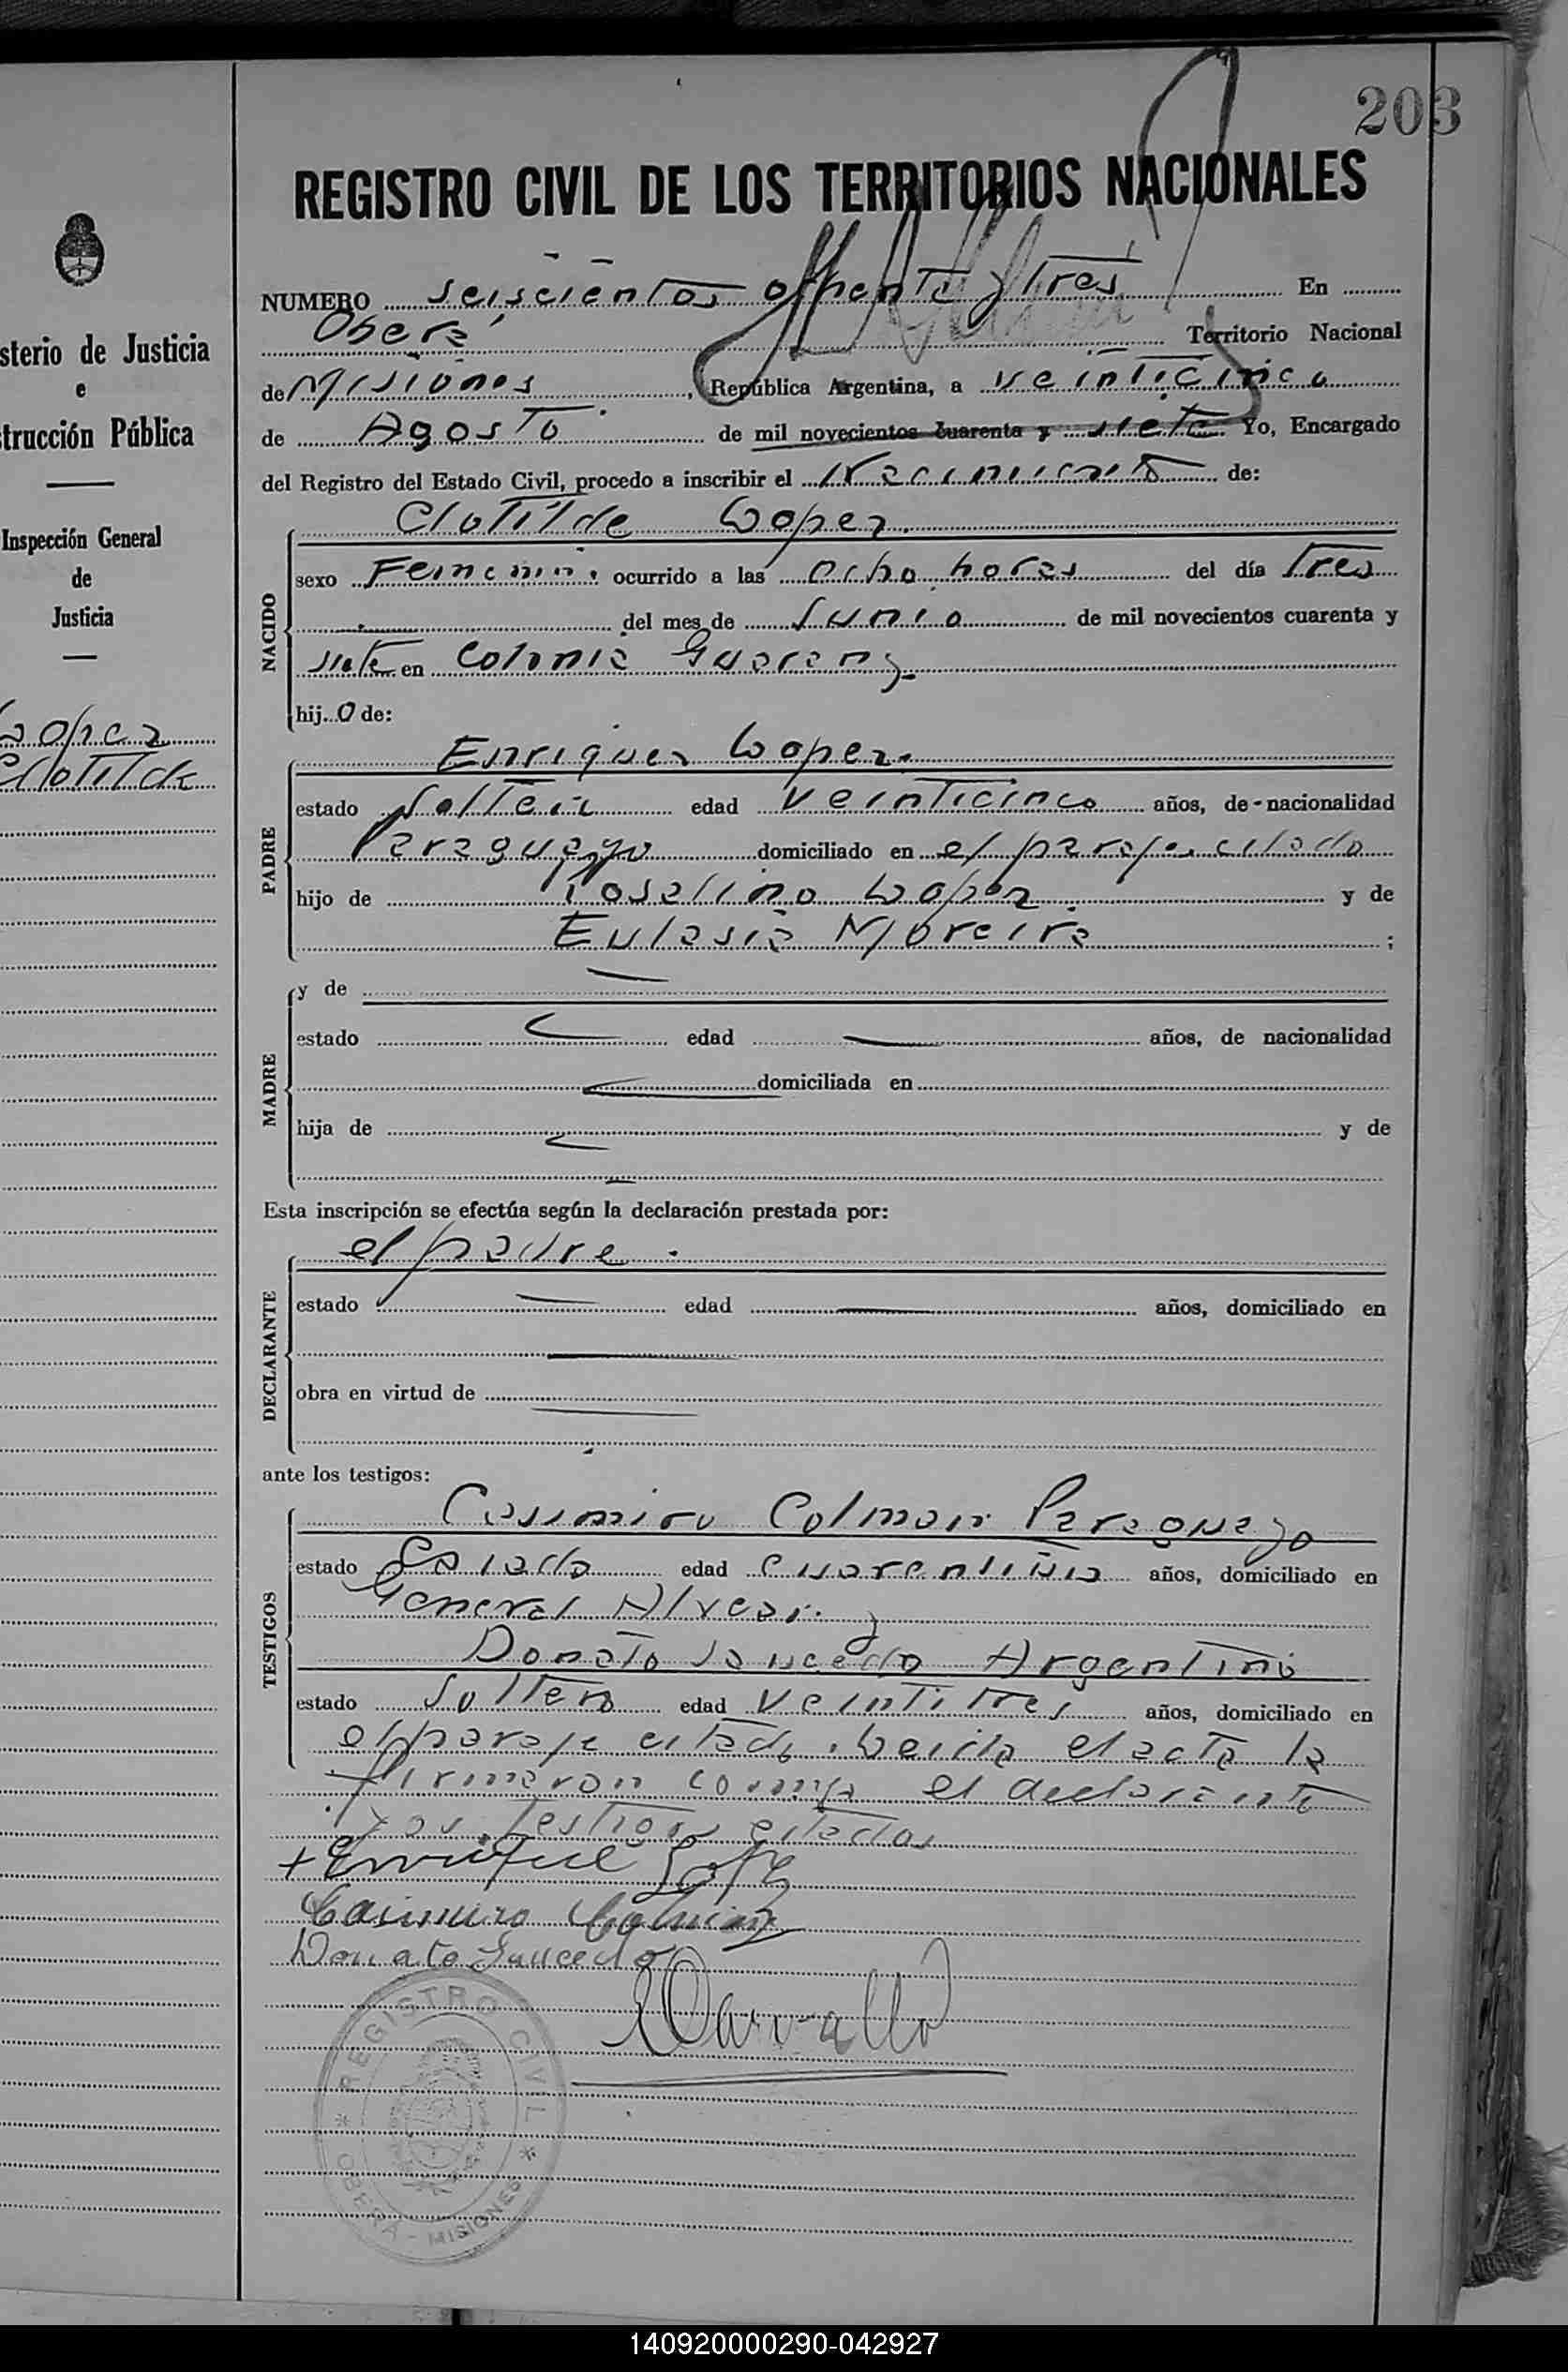 203
REGISTRO CIVIL DE LOS TERRITORIOS NACIONALES
NUMERO seiscientos ochenta y tres En
Oberá Territorio Nacional
de Misiones, República Argentina, a veinticinco
de Agosto de mil novecientos cuarenta y siete Yo, Encargado
del Registro del Estado Civil, procedo a inscribir el Nacimiento de:
NACIDO
Clotilde Lopez.
sexo Femenino ocurrido a las ocho horas del día tres
del mes de Junio de mil novecientos cuarenta y
siete en Colonia Guarany
hij o de:
PADRE
Enriquez Lopez.
estado Soltero edad veinticinco años, de nacionalidad
Paraguayo domiciliado en el paraje citado
hijo de Roselino Lopez y de
Eulasia Moreira ;
MADRE
y de
estado edad años, de nacionalidad
domiciliada en
hija de y de
Esta inscripción se efectúa según la declaración prestada por:
DECLARANTE
el padre.
estado edad años, domiciliado en
obra en virtud de
ante los testigos:
TESTIGOS
Casimiro Colman Paraguayo
estado Casado edad años, domiciliado en
General Alvear y
Donato Saucedo Argentino
estado Soltero edad veintitres años, domiciliado en
el paraje citado. Leida el acta la
firmaron conmigo el declarante
y los testigos citados
+ Enrrique
Casimiro Colman
Donato Saucedo
Carvallo
REGISTRO CIVIL
OBERA - MISIONES
sterio de Justicia
e
trucción Pública
Inspección General
de
Justicia
Lopez
Clotilde
140920000290-042927